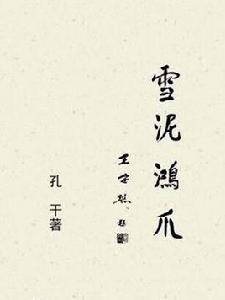 雪泥鸿爪
孔干著